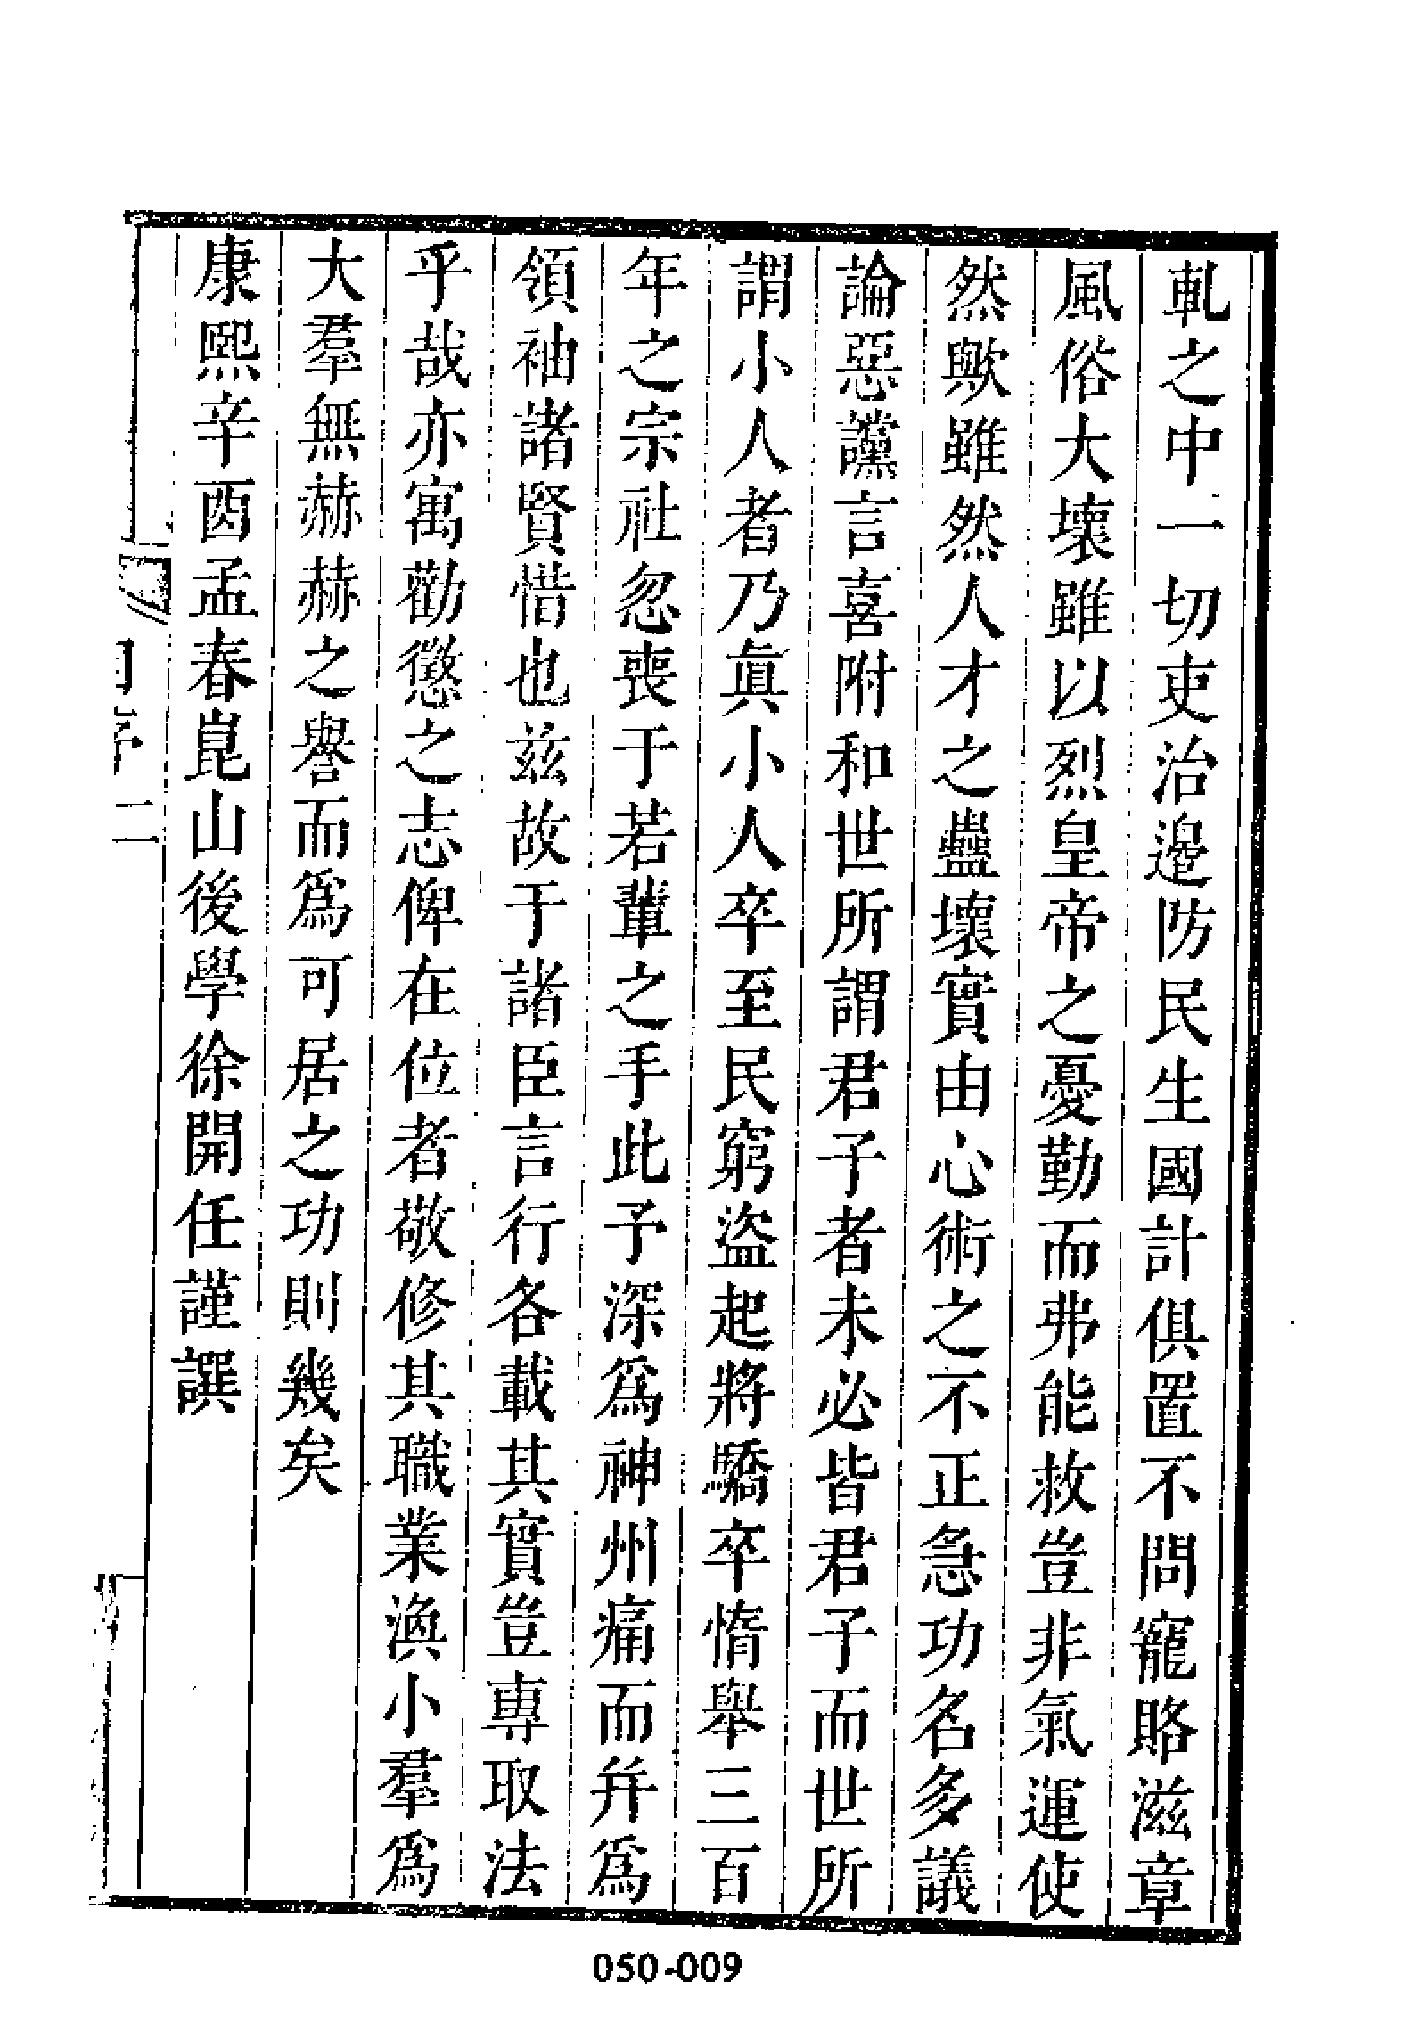 軋之中一切吏治邊防民生國計俱置不問寵賂滋章
風俗大壞雖以烈皇帝之憂勤而弗能救豈非氣運使
然歟雖然人才之蠱壞實由心術之不正急功名多議
論惡讜言喜附和世所謂君子者未必皆君子而世所
謂小人者乃眞小人卒至民窮盜起將驕卒惰舉三百
年之宗社忽喪于若輩之手此予深爲神州痛而幷爲
領袖諸賢惜也茲故于諸臣言行各載其實豈專取法
乎哉亦寓勸懲之志俾在位者敬修其職業渙小羣爲
大羣無赫赫之譽而爲可居之功則幾矣
康熙辛酉孟春崑山後學徐開任謹譔
序二
050-009